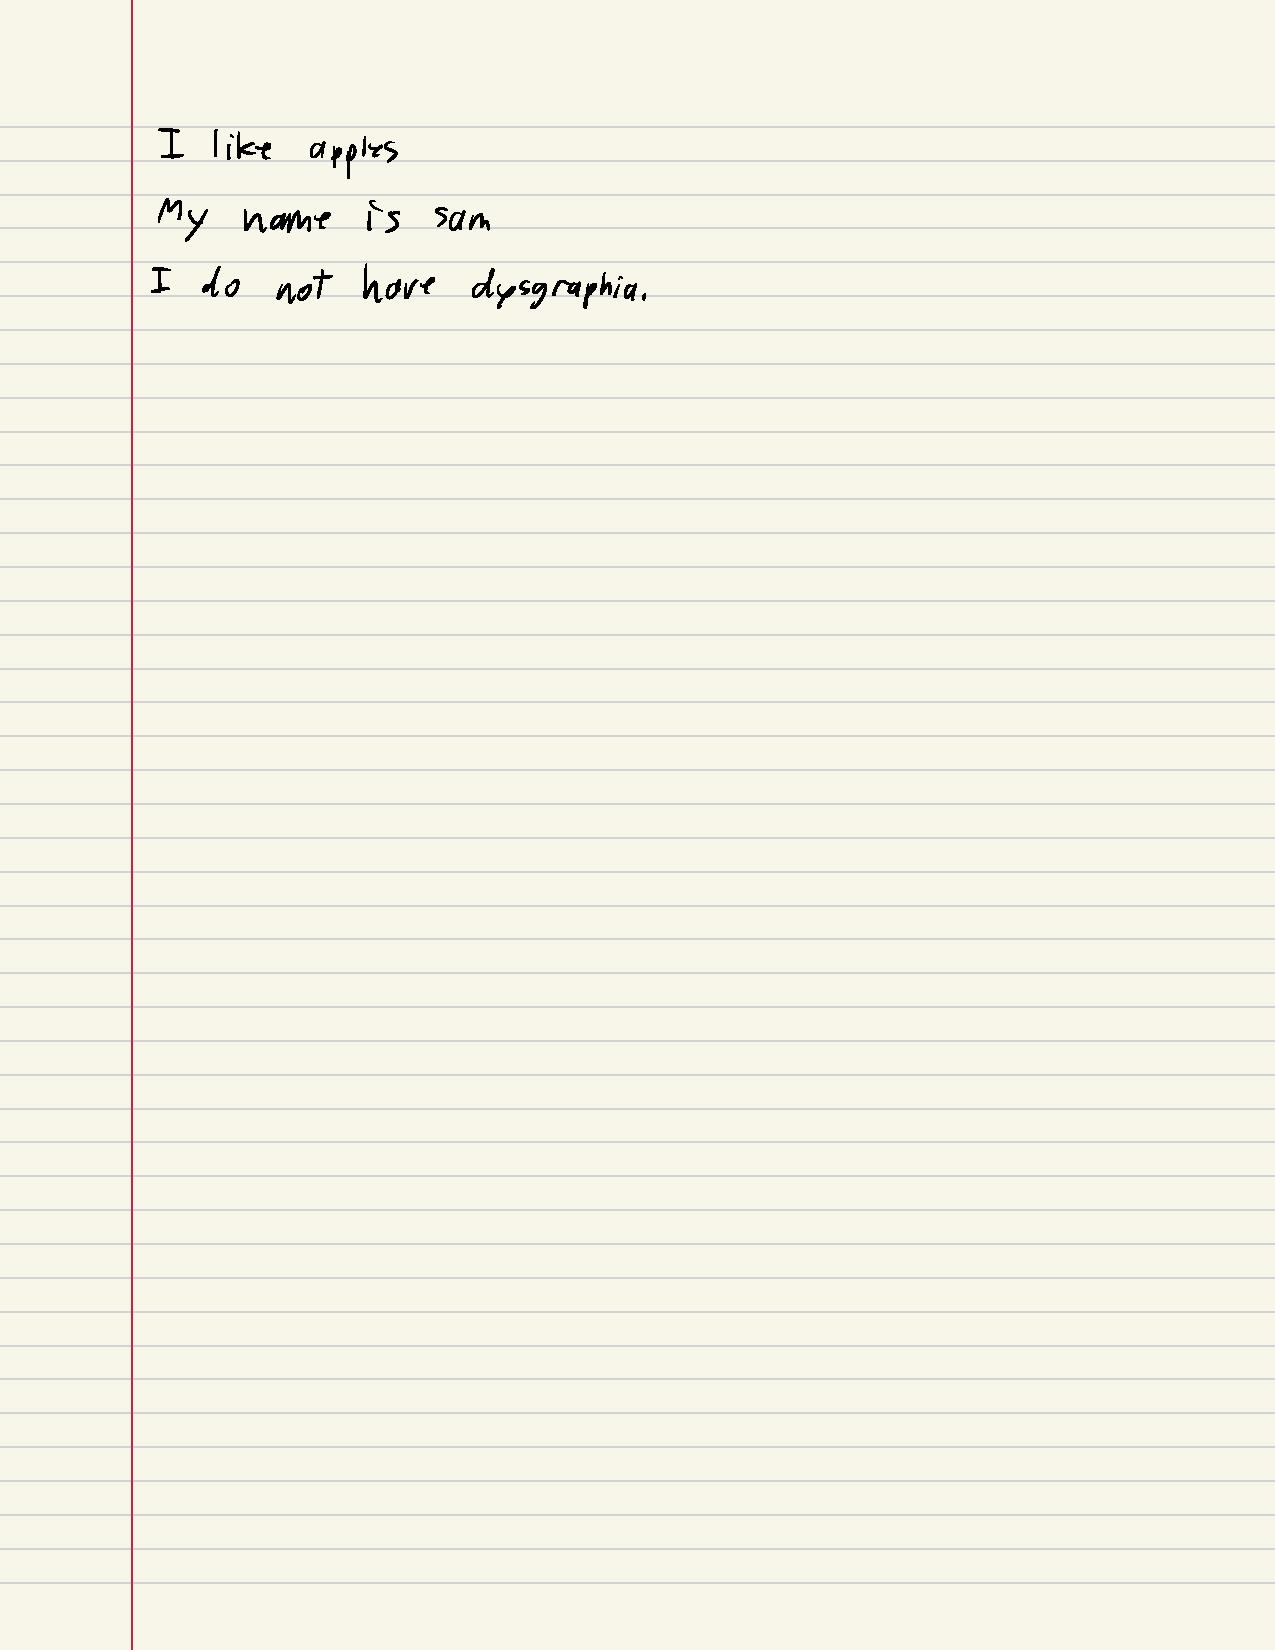 I like apples
My name is sam
I do not have dysgraphia.